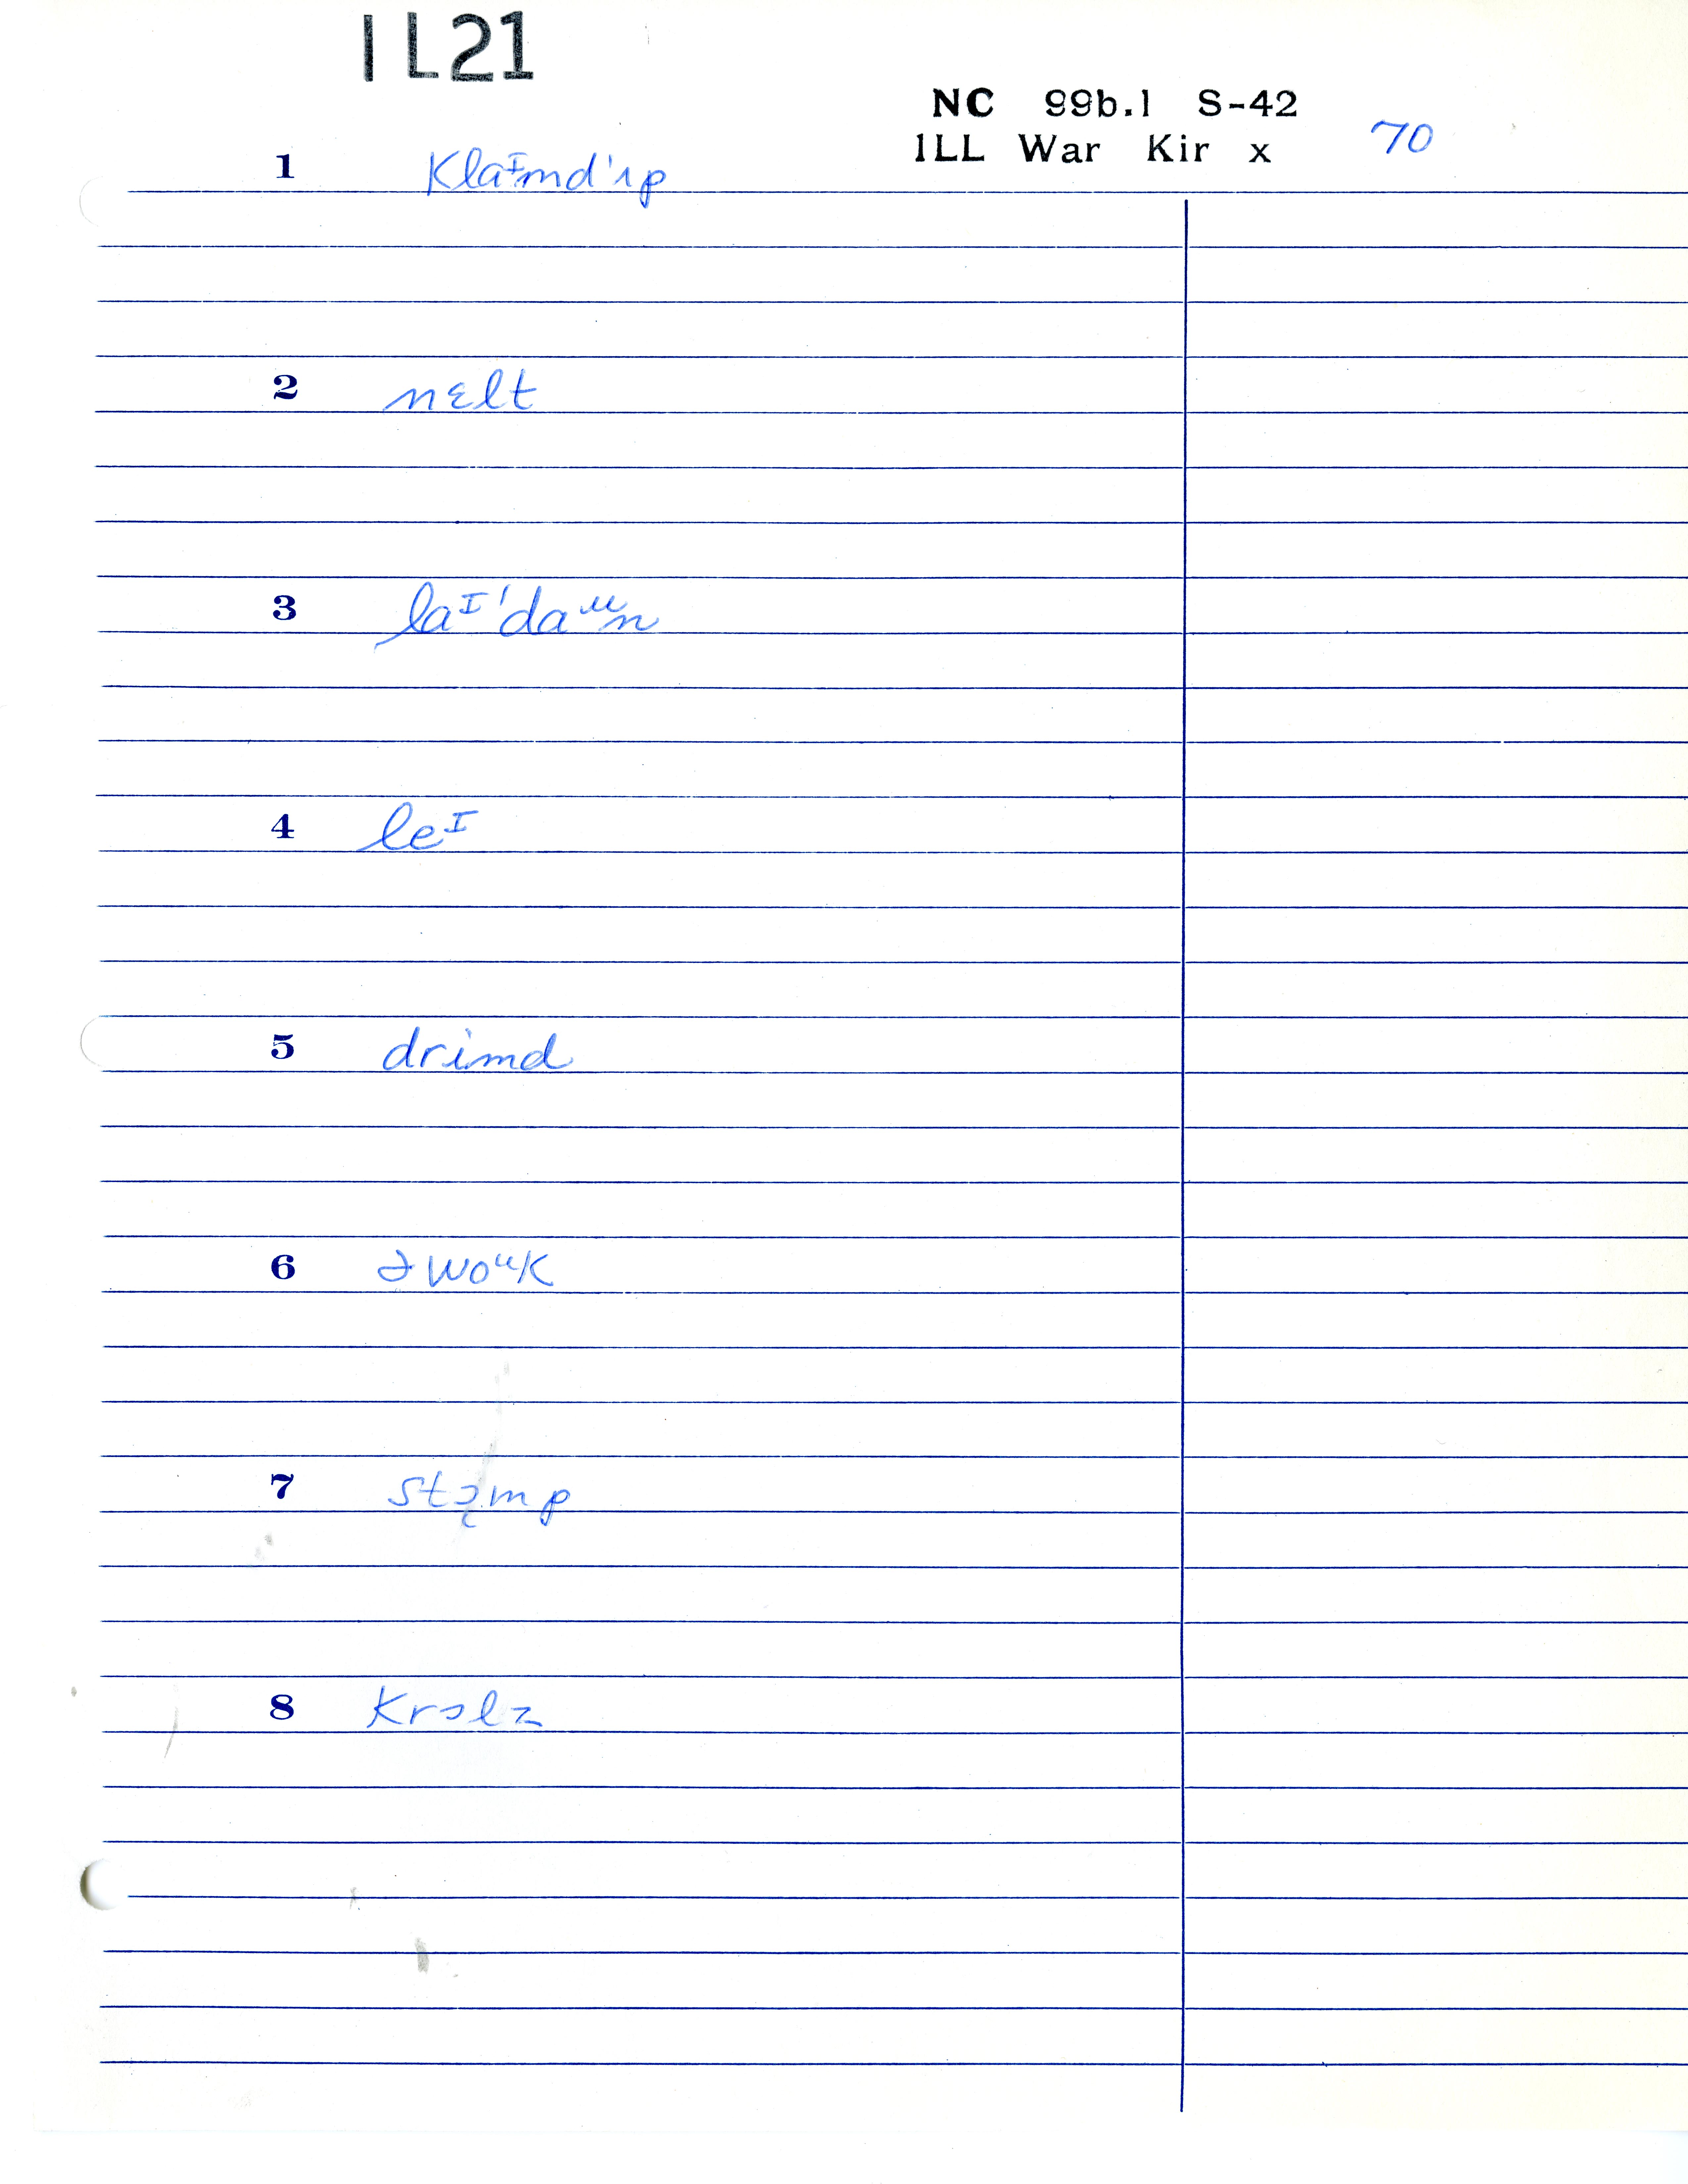 IL21
NC 99b.1 S-42
ILL War Kir x 70
1 klaᶦmd'ʌp
2 nɛlt
3 laᶦ'daᵘn
4 leᶦ
5 drimd
6 əwoᵘk
7 stɔ̨mp
8 krɔlz